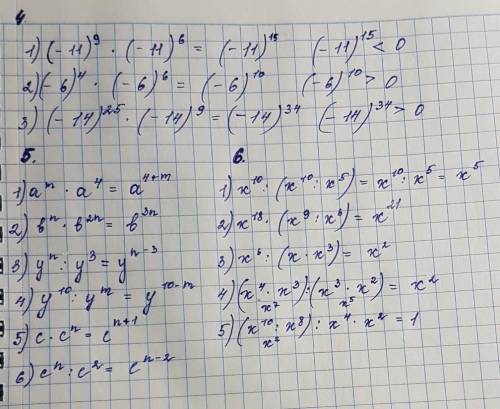 4.
1) (-11)⁹ · (-11)⁶ = (-11)¹⁵ (-11)¹⁵ < 0
2) (-6)⁴ · (-6)⁶ = (-6)¹⁰ (-6)¹⁰ > 0
3) (-14)²⁵ · (-14)⁹ = (-14)³⁴ (-14)³⁴ > 0
5.
1) aᵐ · a⁴ = a⁴⁺ᵐ
2) bⁿ · b²ⁿ = b³ⁿ
3) yⁿ : y³ = yⁿ⁻³
4) y¹⁰ : yᵐ = y¹⁰⁻ᵐ
5) c · cⁿ = cⁿ⁺¹
6) cⁿ : c² = cⁿ⁻²
6.
1) x¹⁰ : (x¹⁰ : x⁵) = x¹⁰ : x⁵ = x⁵
2) x¹⁸ · (x⁹ : x⁶) = x²¹
3) x⁶ : (x · x³) = x²
4) (x⁴ · x³) : (x³ · x²) = x²
x⁷ x⁵
5) (x¹⁰ : x⁸) : x⁴ · x² = 1
x²